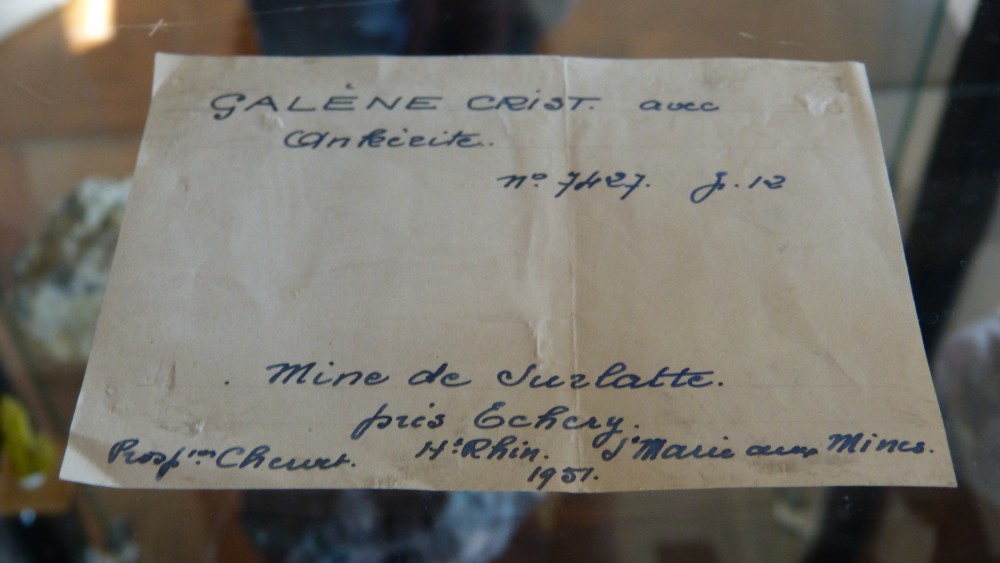 GALÈNE CRIST. avec
Ankérite.
nº 7427. g. 12
Mine de Surlatte.
près Echery.
Hᵗ Rhin. Sᵗᵉ Marie aux Mines.
1951.